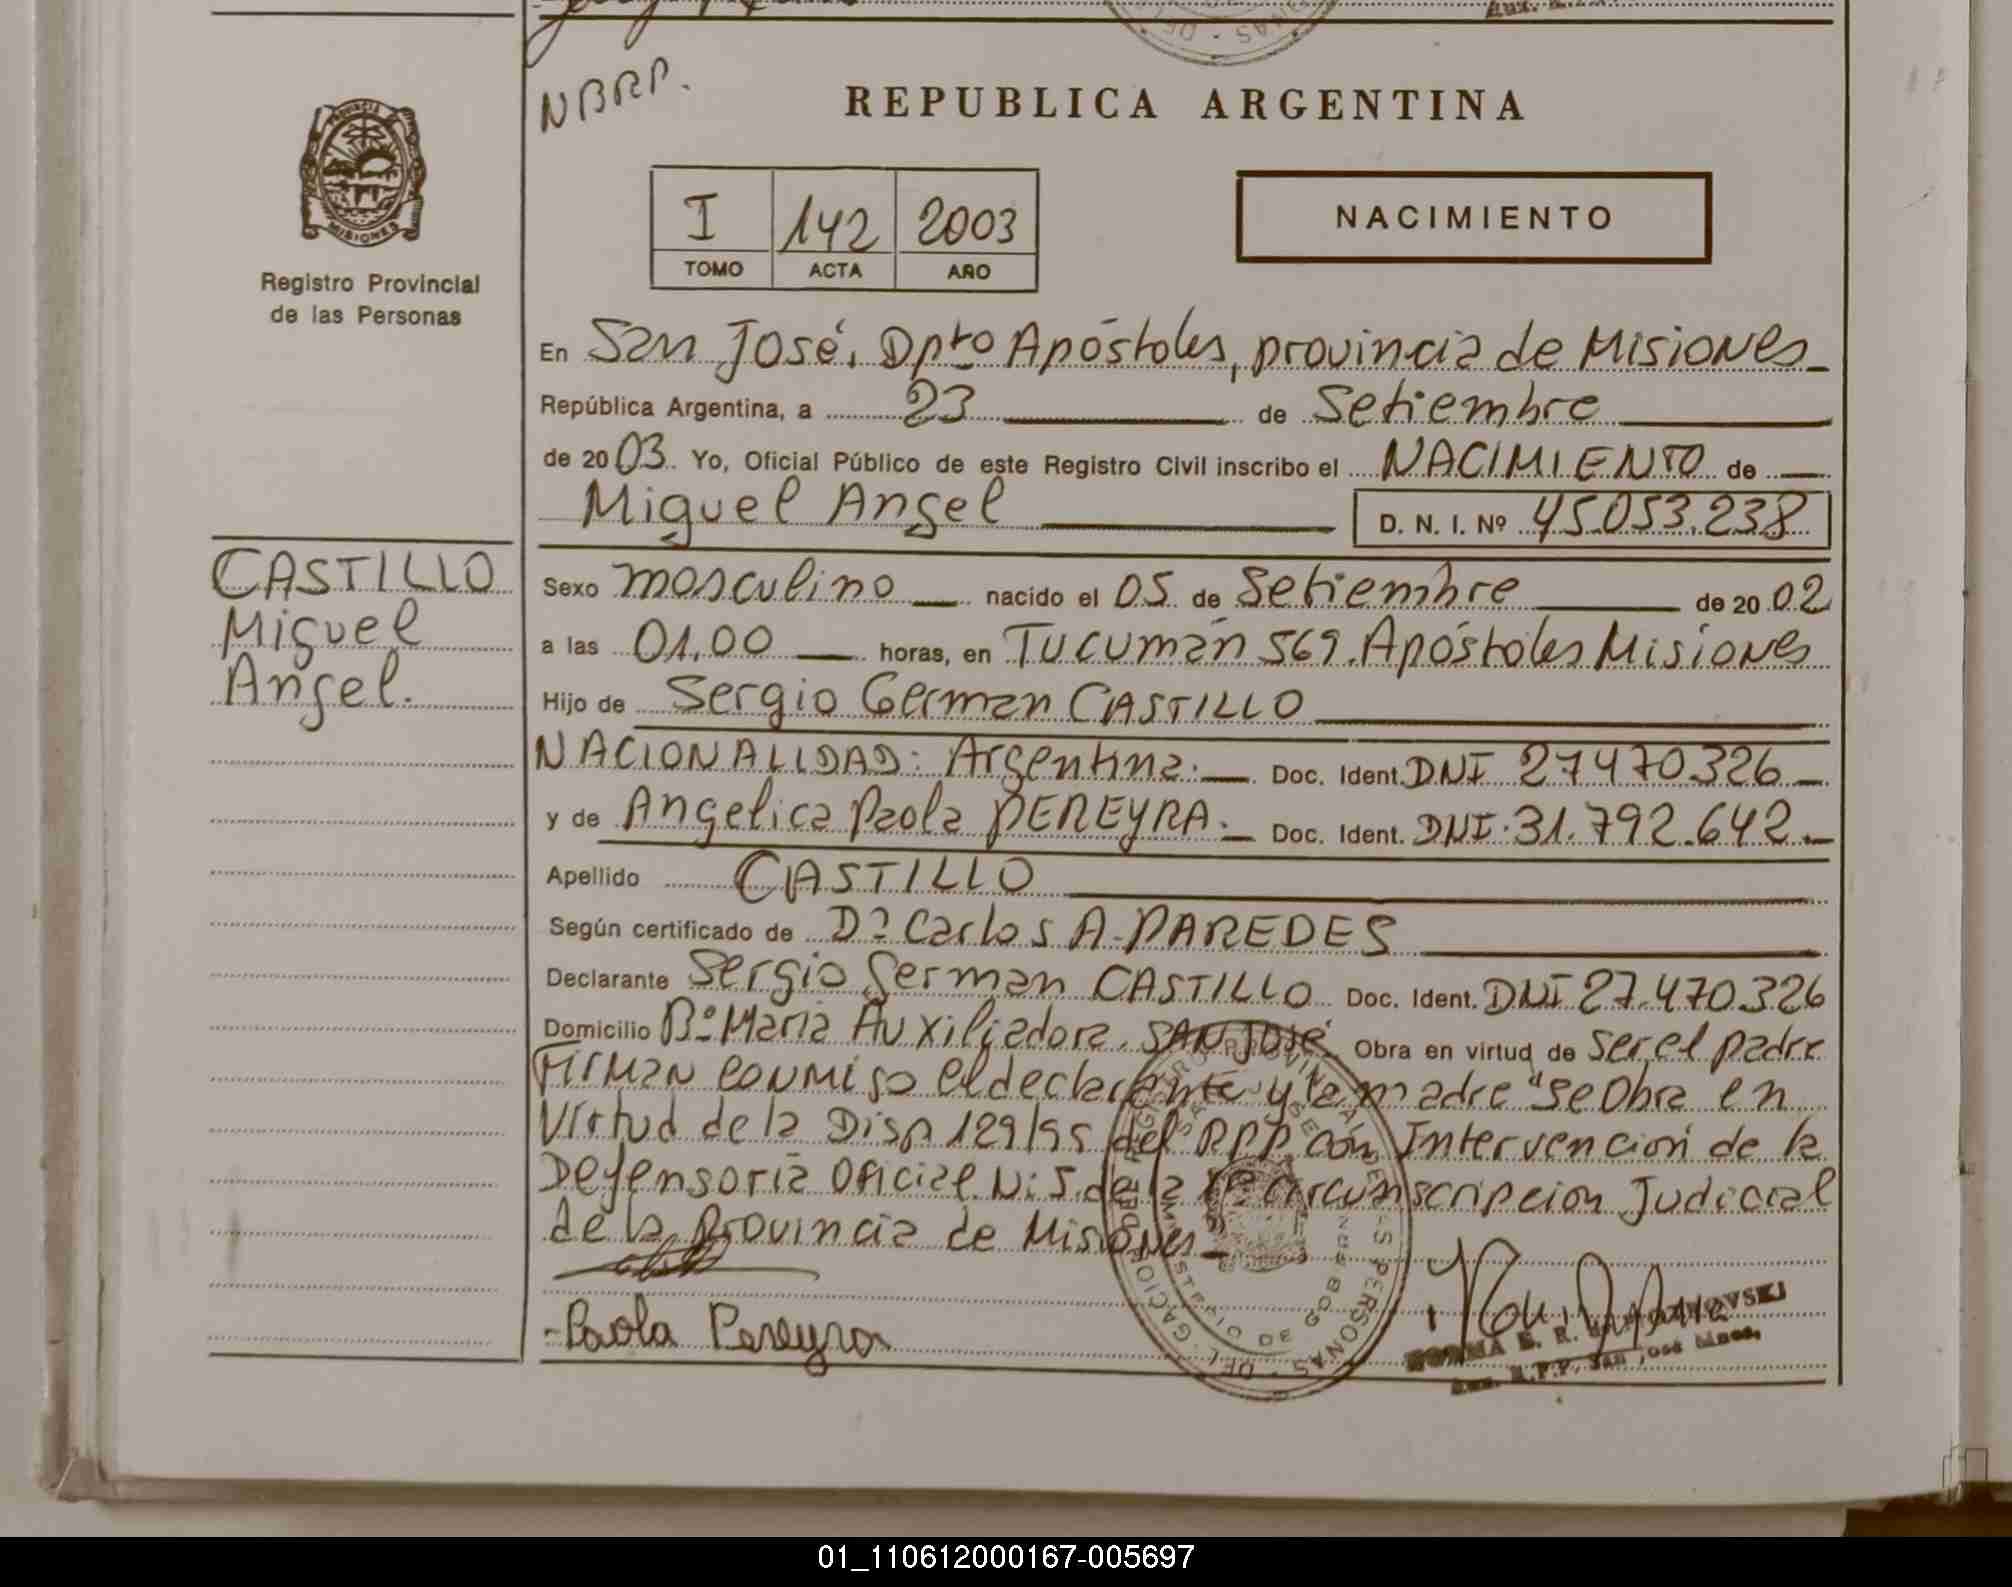 NBRP.
REPUBLICA ARGENTINA
PROVINCIA
MISIONES
Registro Provincial
de las Personas
I 142 2003
TOMO ACTA AÑO
NACIMIENTO
En San José, Dpto Apóstoles, provincia de Misiones_
República Argentina, a 23 de Setiembre
de 2003. Yo, Oficial Público de este Registro Civil inscribo el NACIMIENTO de
Miguel Angel D. N. I. Nº 45.053.238
CASTILLO
Miguel
Angel.
Sexo masculino nacido el 05 de Setiembre de 2002
a las 01,00 horas, en Tucumán 569. Apóstoles Misiones
Hijo de Sergio German CASTILLO
NACIONALIDAD: Argentina. Doc. Ident. DNI 27470.326
y de Angelica Paola PEREYRA. Doc. Ident. DNI. 31.792.642.
Apellido CASTILLO
Según certificado de Dr Carlos A. PAREDES
Declarante Sergio German CASTILLO Doc. Ident. DNI 27.470.326
Domicilio Bº Maria Auxiliadora. SAN JOSÉ. Obra en virtud de ser el padre
Firman conmigo el declarante y la madre "se Obra en
Virtud de la Disp 129/95 del RPP con Intervención de la
Defensoría Oficial N: 5 de la Circunscripcion Judicial
de la Provincia de Misiones_
Paola Pereyra
NORMA E. R.
Aux. R.P.P. San José Mnes.
01_110612000167-005697